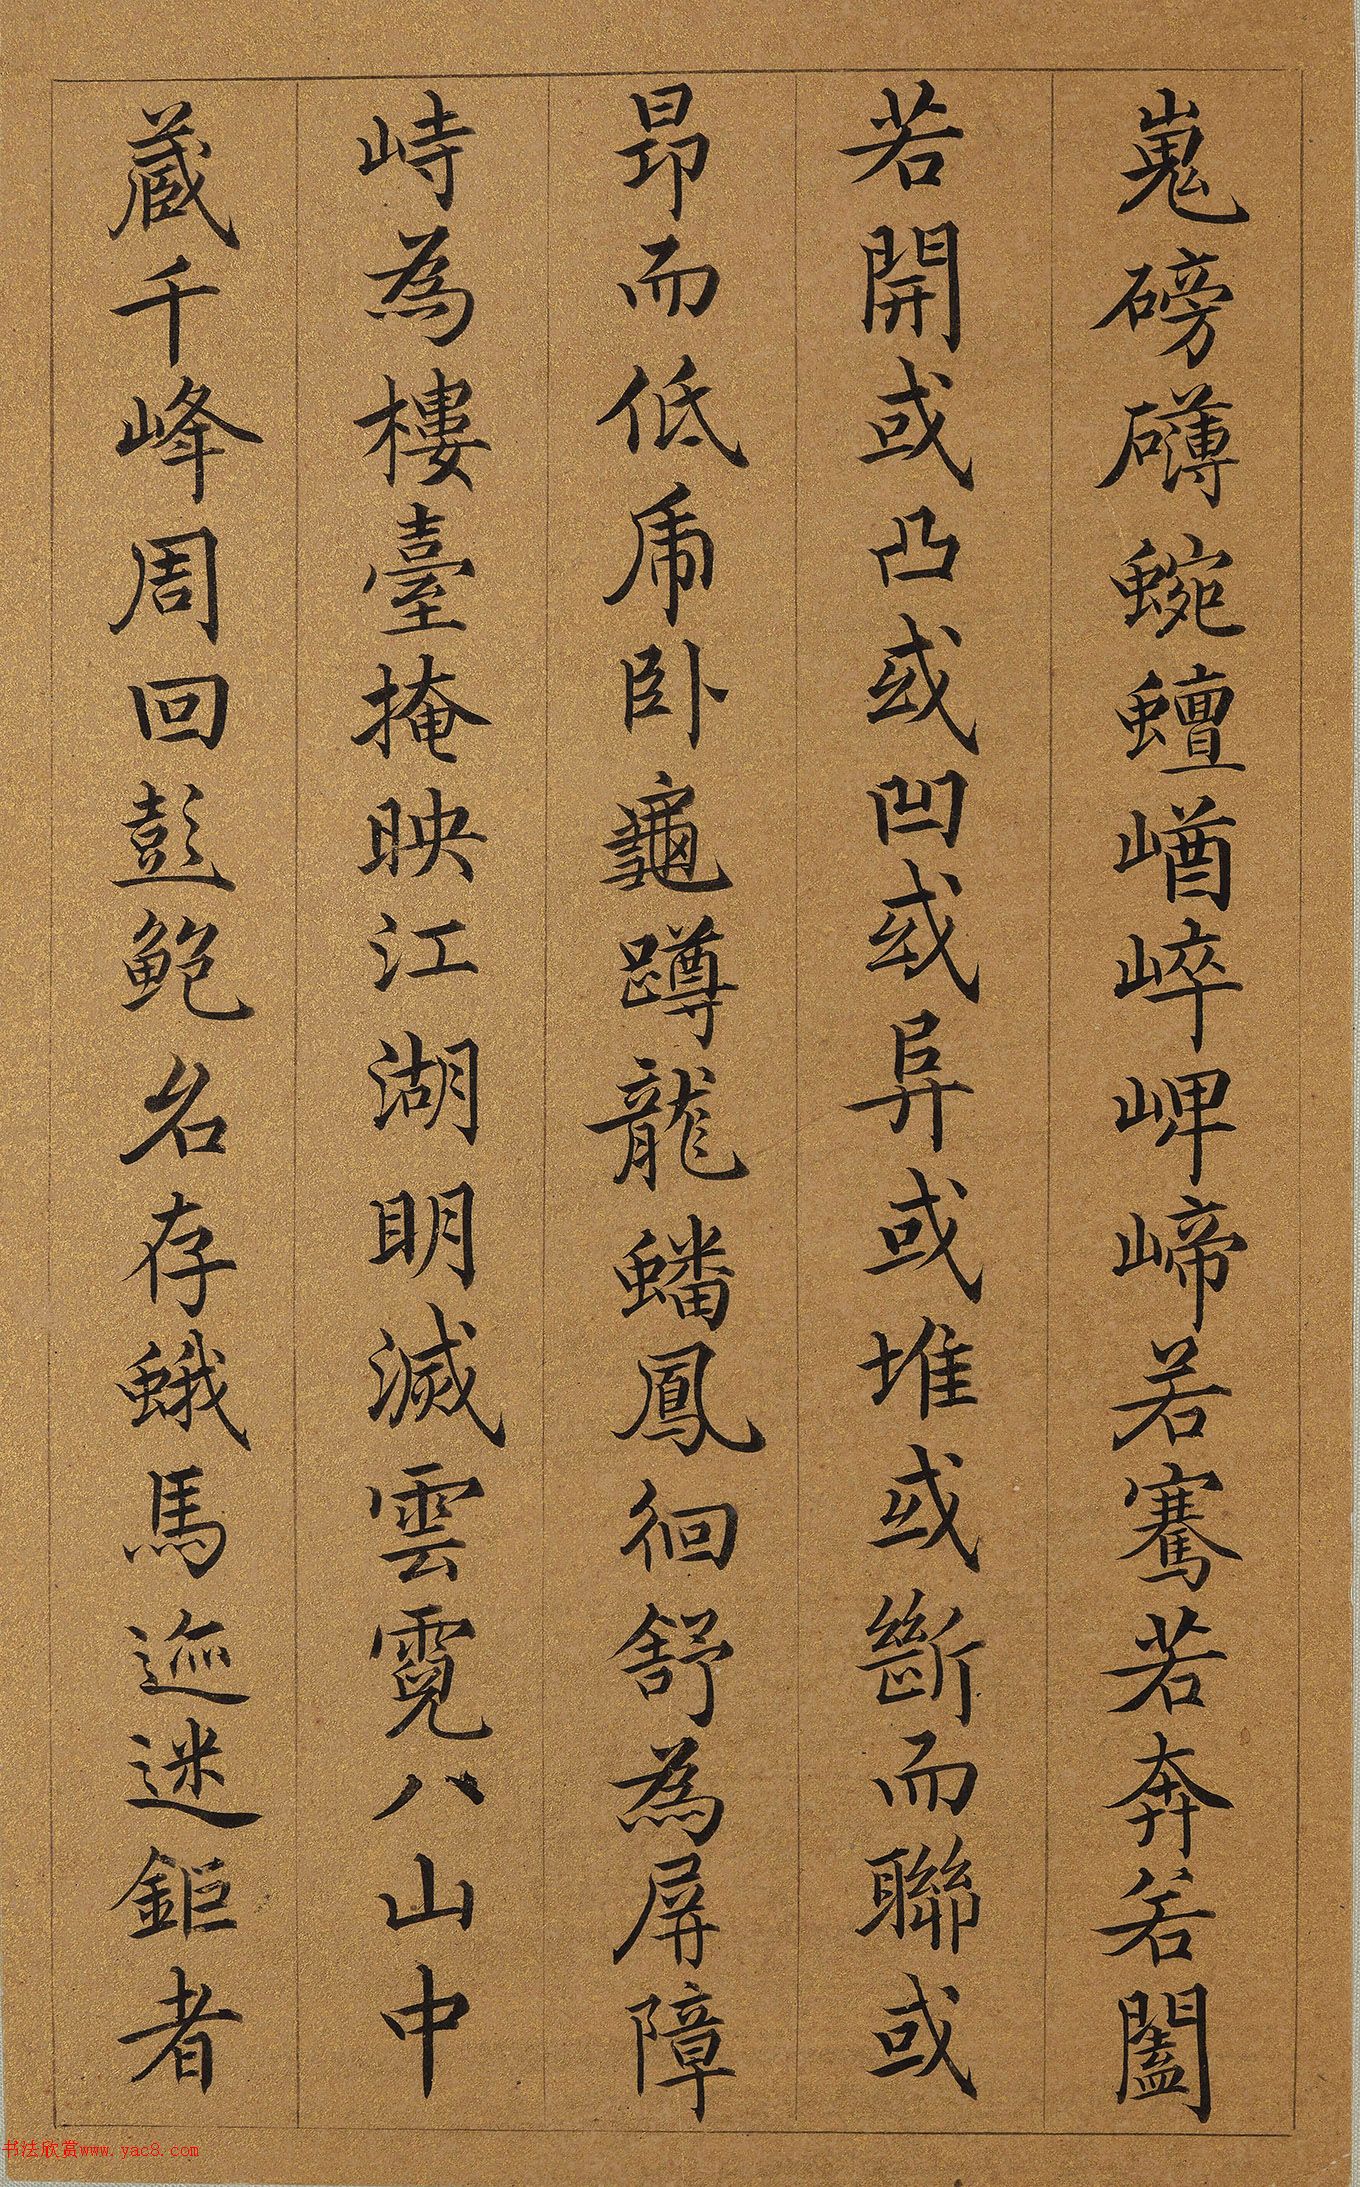 嵬磅礴蜿蟺崷崒岬崹若騫若奔若闔
若開或凸或凹或异或堆或斷而聯或
昻而低乕卧龜蹲龍蟠鳳徊舒為屏障
峙為樓臺掩映江湖明滅雲霓八山中
蔵千峰周回彭鲍名存蛾馬迹迷鉅者
书法欣赏www.yac8.com